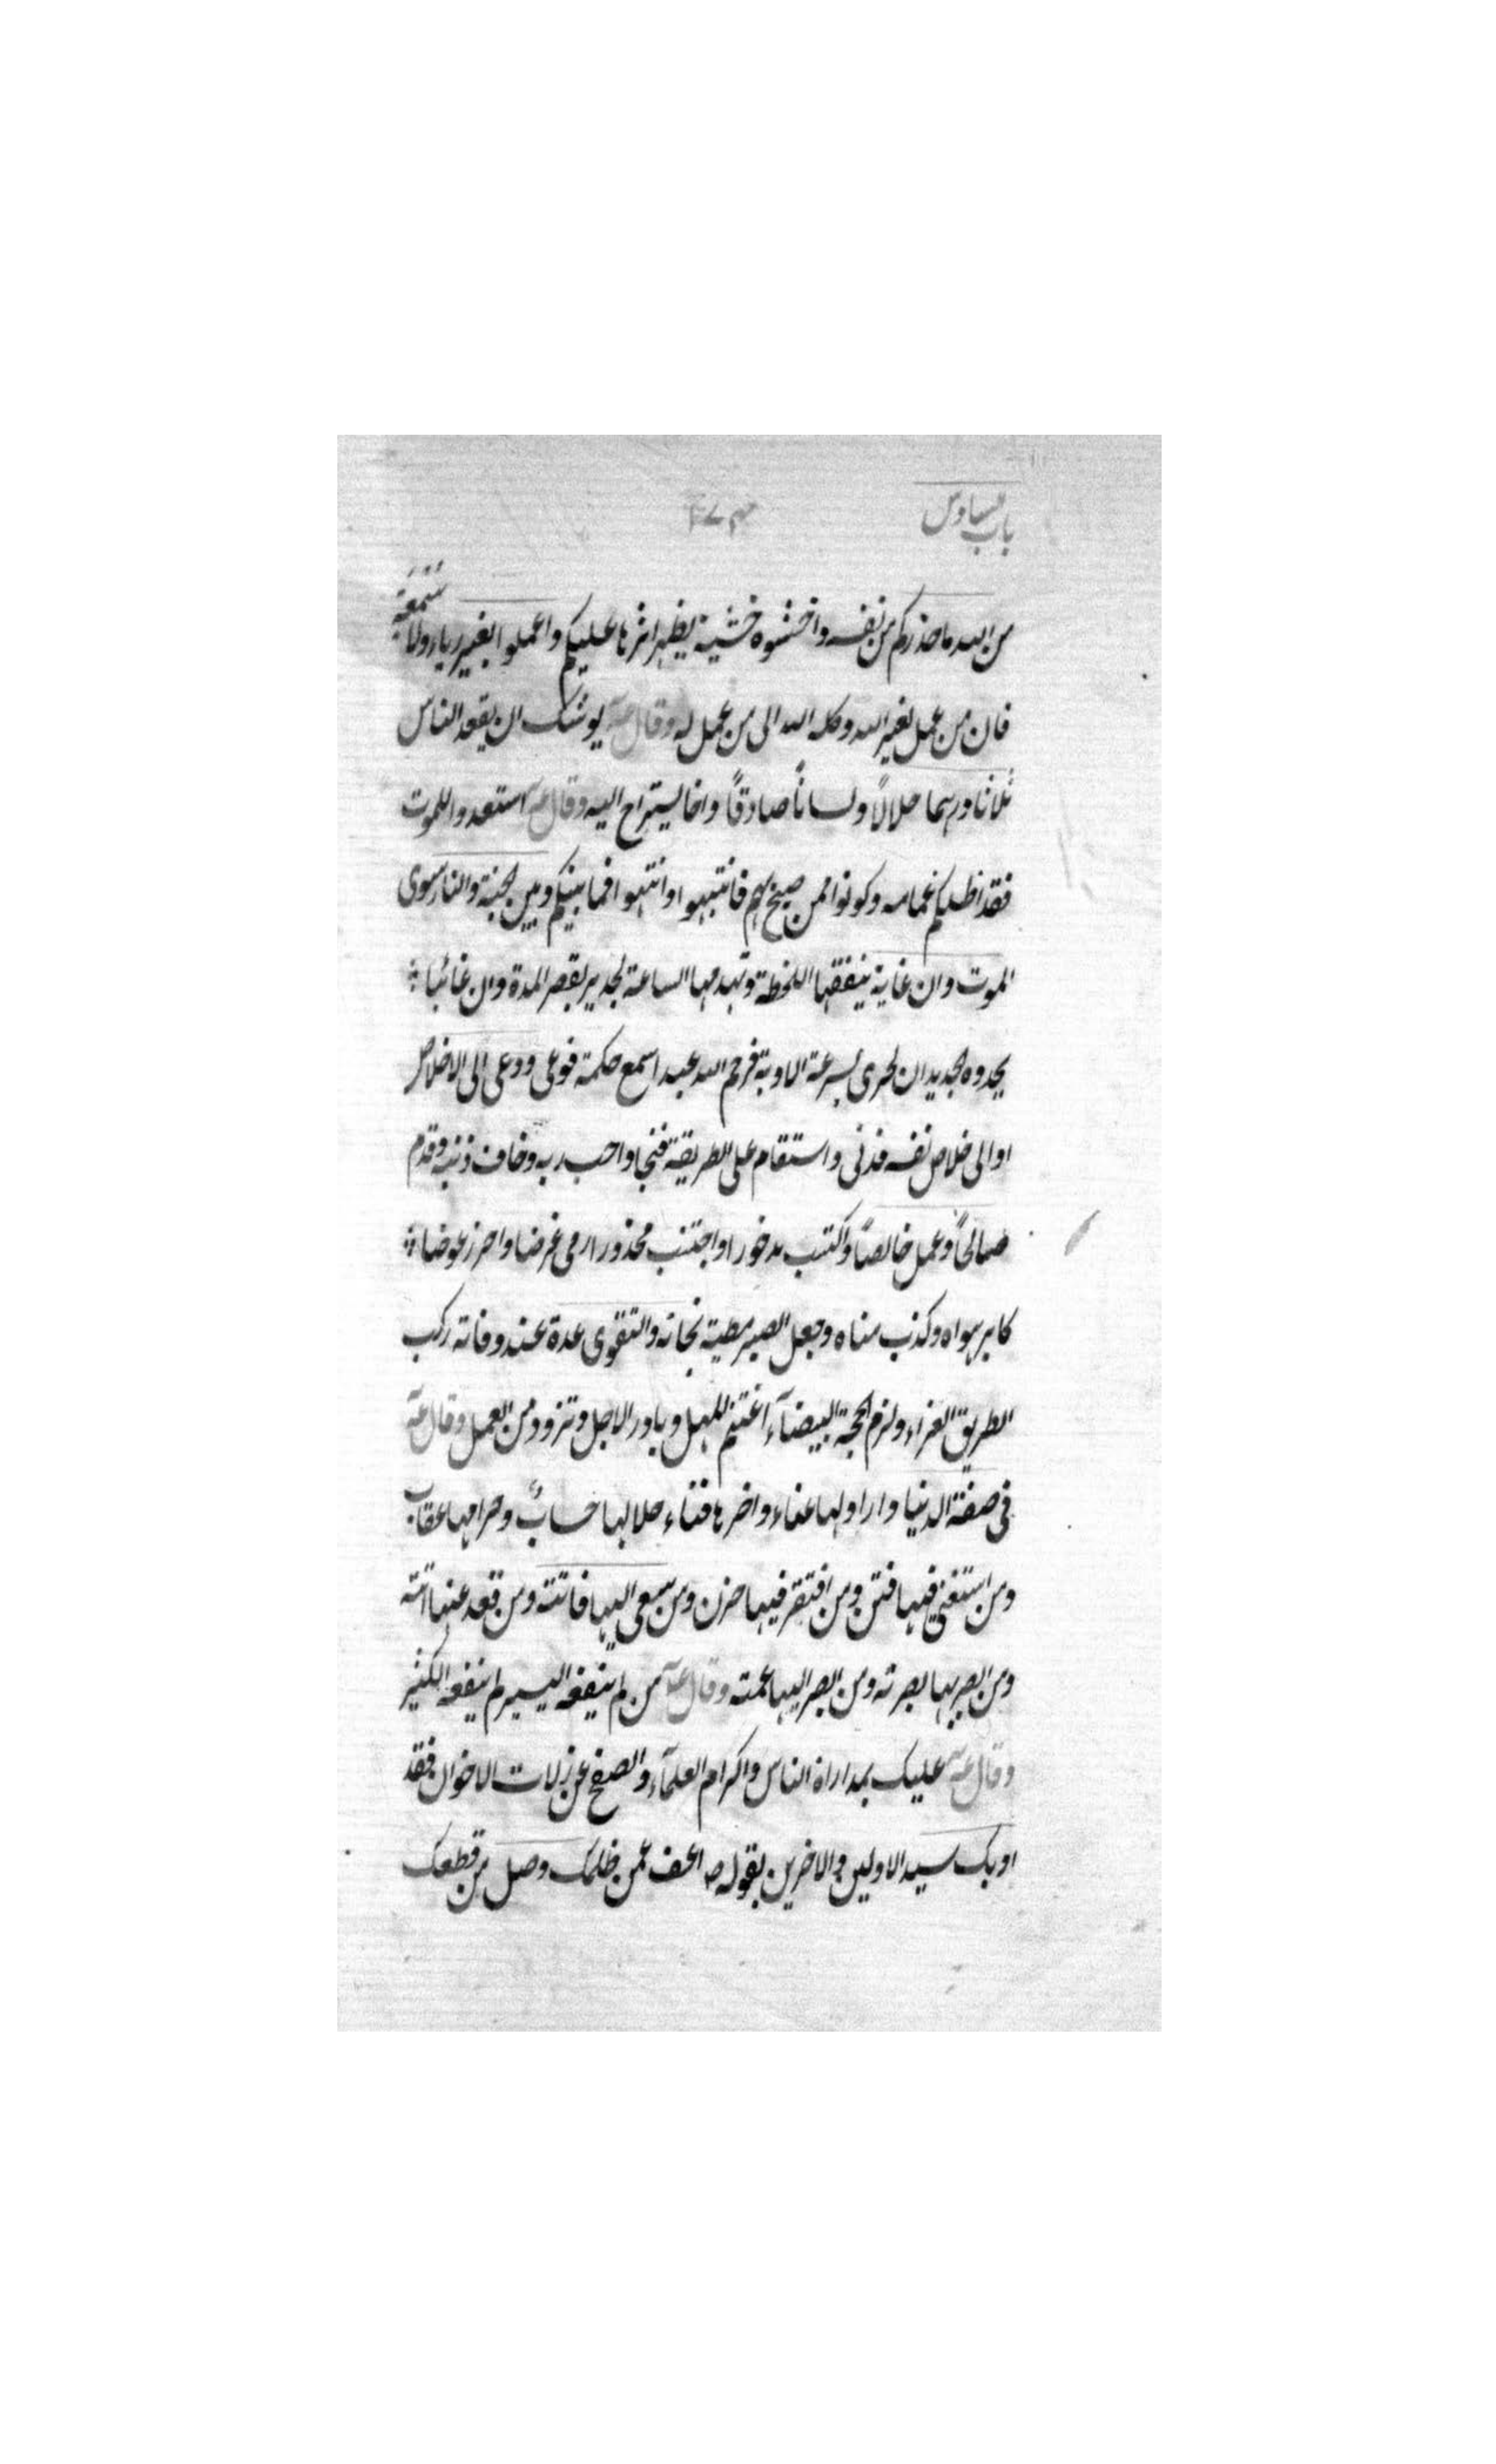 باب السادس
من الله ما حذركم من نفسه واخشوه خشية يظهر اثرها عليكم واعملوا بغير رياء ولا سُمْعَة
فان من عمل لغير الله وكله الله الى من عمل له وقال عه يوشك ان يفقد الناس
ثلاثا درهما حلالاً ولساناً صادقاً واخا يستراح اليه وقال عه استعدوا للموت
فقد اظلكم غمامه وكونوا ممن صيح بهم فانتبهوا وانتهوا فما بينكم وبين الجنة والنار سوى
الموت وان غاية ينقصها اللحظة وتهدمها الساعة لجدير بقصر المدة وان غائبا
يحدوه الجديدان لحرى بسرعة الاوبة فرحم الله عبدا سمع حكمة فوعى ودعى الى الاخلاص
او الى خلاص نفسه فدنى واستقام على الطريقة فنجا واحب ربه وخاف ذنبه وقدم
صالحاً وعمل خالصاً واكتسب مدخورا واجتنب محذورا رمى غرضا واحرز عوضا
كابر هواه وكذب مناه وجعل الصبر مطية نجاته والتقوى عدة عند وفاته ركب
الطريق الغراء ولزم المحجة البيضآء اغتنم المهل وبادر الاجل وتزود من العمل وقال عه
فى صفة الدنيا دار اولها عناء واخرها فناء حلالها حسابٌ وحرامها عقاب
ومن استغنى فيها فتن ومن افتقر فيها حزن ومن سعى اليها فاتته ومن قعد عنها اتته
ومن ابصر بها بصرته ومن ابصر اليها عمته وقال عه من لم ينفعه اليسير لم ينفعه الكثير
وقال عه عليك بمداراة الناس واكرام العلمآء والصفح عن زلات الاخوان فقد
ادبك سيد الاولين والاخرين بقوله ص اعف عمن ظلمك وصل من قطعك